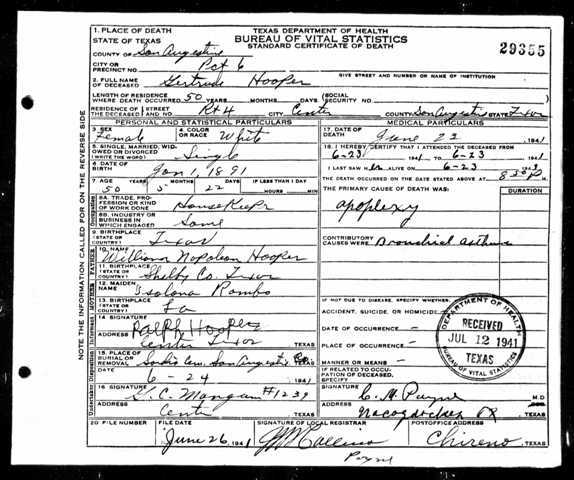 1. PLACE OF DEATH
STATE OF TEXAS
COUNTY OF San Augustine
CITY OR PRECINCT NO. Pct 6
TEXAS DEPARTMENT OF HEALTH
BUREAU OF VITAL STATISTICS
STANDARD CERTIFICATE OF DEATH
29355
GIVE STREET AND NUMBER OR NAME OF INSTITUTION
2. FULL NAME OF DECEASED Gertrude Hooper
LENGTH OF RESIDENCE WHERE DEATH OCCURRED 50 YEARS MONTHS DAYS (SOCIAL SECURITY NO.
RESIDENCE OF THE DECEASED (STREET AND NO. Rt 4 CITY Center COUNTY San Augustine STATE Texas
PERSONAL AND STATISTICAL PARTICULARS
3. SEX Female
4. COLOR OR RACE White
5. SINGLE, MARRIED, WIDOWED OR DIVORCED (WRITE THE WORD) Single
6. DATE OF BIRTH Jan 1, 1891
7. AGE YEARS MONTHS DAYS IF LESS THAN 1 DAY
50 5 22 HOURS MIN
8A. TRADE, PROFESSION OR KIND OF WORK DONE House Keeper
8B. INDUSTRY OR BUSINESS IN WHICH ENGAGED Same
9. BIRTHPLACE (STATE OR COUNTRY) Texas
10. NAME William Napolean Hooper
11. BIRTHPLACE (STATE OR COUNTRY) Shelby Co. Texas
12. MAIDEN NAME Rambo
13. BIRTHPLACE (STATE OR COUNTRY) La
14. SIGNATURE Ralph Hooper
ADDRESS Center Texas TEXAS
15. PLACE OF BURIAL OR REMOVAL Cem. San Augustine TEXAS
DATE 6 - 24 1941
16. SIGNATURE S. C. Mangum #1239
ADDRESS Center TEXAS
MEDICAL PARTICULARS
17. DATE OF DEATH June 23 1941
18. I HEREBY CERTIFY THAT I ATTENDED THE DECEASED FROM 6-23 1941 TO 6-23 1941
I LAST SAW her ALIVE ON 6-23 1941
THE DEATH OCCURRED ON THE DATE STATED ABOVE AT 8:30 P M.
THE PRIMARY CAUSE OF DEATH WAS: DURATION
apoplexy
CONTRIBUTORY CAUSES WERE: Bronchial asthma
IF NOT DUE TO DISEASE, SPECIFY WHETHER:
ACCIDENT, SUICIDE, OR HOMICIDE
DATE OF OCCURRENCE —
PLACE OF OCCURRENCE —
MANNER OR MEANS —
IF RELATED TO OCCUPATION OF DECEASED, SPECIFY
SIGNATURE C. M. Payne M.D.
ADDRESS Nacogdoches TEXAS
DEPARTMENT OF HEALTH
RECEIVED
JUL 12 1941
TEXAS
BUREAU OF VITAL STATISTICS
20. FILE NUMBER FILE DATE SIGNATURE OF LOCAL REGISTRAR POSTOFFICE ADDRESS
June 26 1941 Chireno, TEXAS
Payne
NOTE THE INFORMATION CALLED FOR ON THE REVERSE SIDE
Occupation
FATHER
MOTHER
Informant
Undertaker Disposition